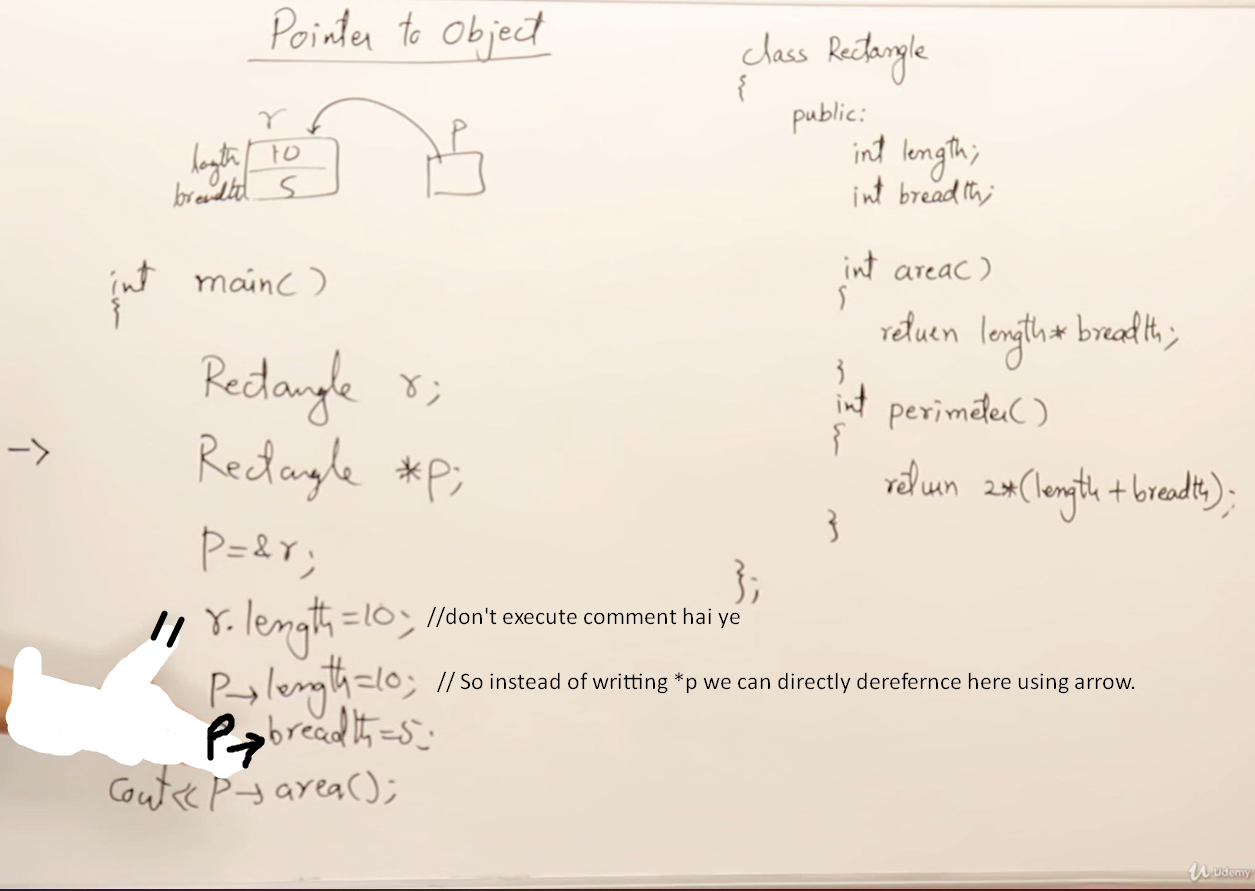 Pointer to Object
r
p
length 10
breadth 5
int main()
{
Rectangle r;
->
Rectangle *p;
p=&r;
// r.length=10; //don't execute comment hai ye
p→length=10; // So instead of writting *p we can directly derefernce here using arrow.
p→breadth=5;
cout<<p→area();
class Rectangle
{
public:
int length;
int breadth;
int area()
{
return length*breadth;
}
int perimeter()
{
return 2*(length+breadth);
}
};
Udemy